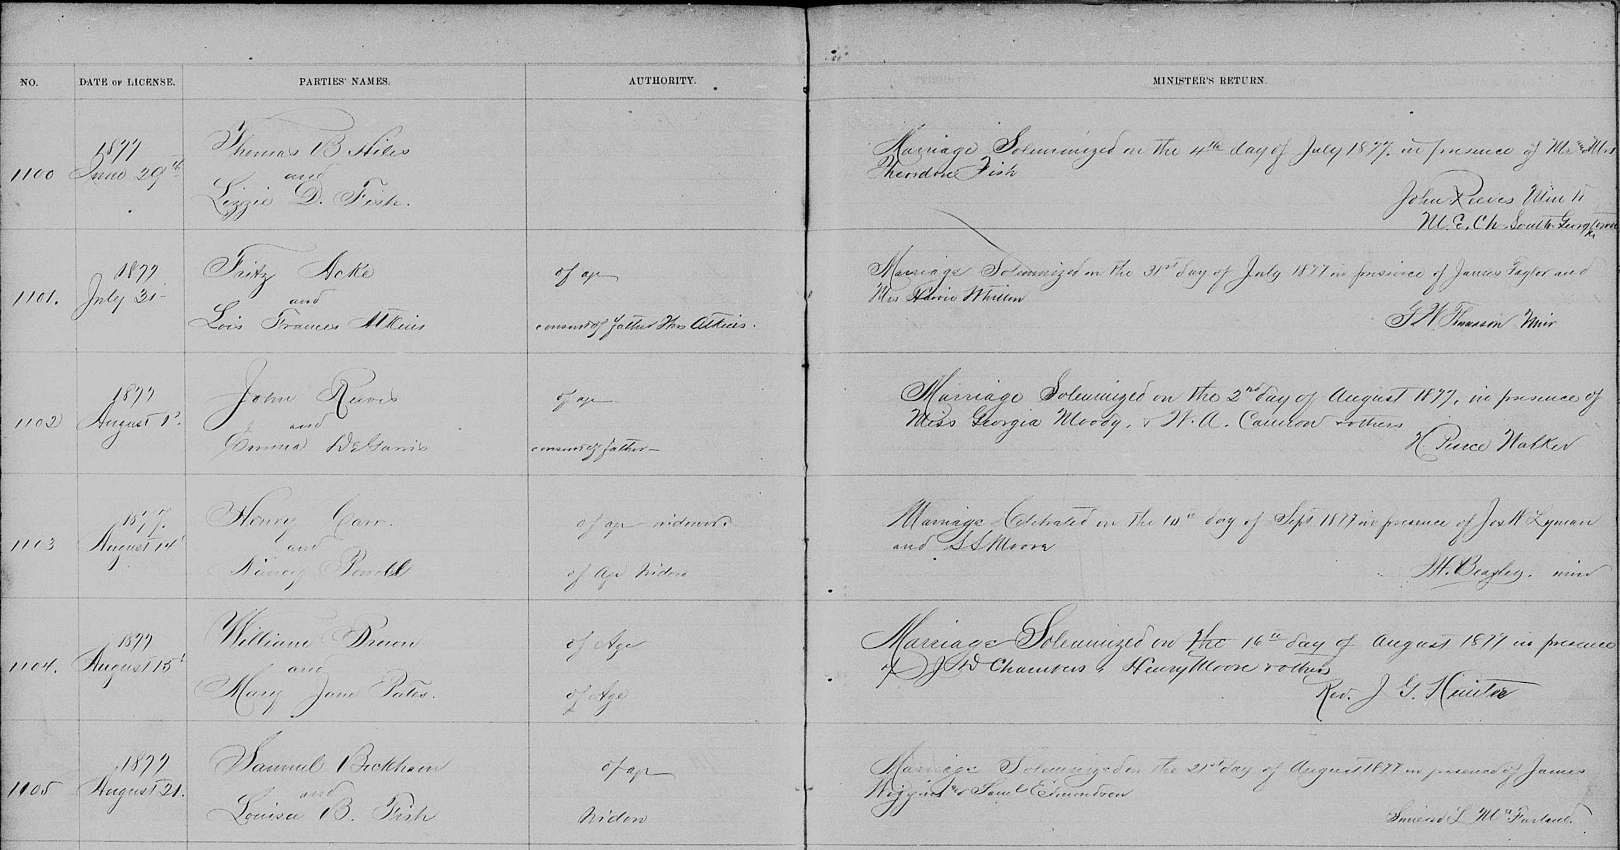 NO.
DATE OF LICENSE.
PARTIES' NAMES.
AUTHORITY.
MINISTER'S RETURN.
1100
1877
June 29th
Thomas B Hiles
and
Lizzie D. Fish.
Marriage Solemnized on the 4th day of July 1877. in presence of Mr & Mrs
Theodore Fish
John Reeves Min
M. E. Ch. South
1101.
1877
July 31
Fritz Acke
and
Lois Frances Atkins
of age
consent of father Thos Atkins.
Marriage Solemnized on the 31st day of July 1877 in presence of James Taylor and
Mrs Whitten
Min
1102
1877
August 1st
John Reeves
and
Emma
of age
consent of father
Marriage Solemnized on the 2nd day of August 1877, in presence of
Miss Georgia Moody, & W. A. Cameron & others
H Pierce Walker
1103
1877.
August 14
Henry Carr.
and
Nancy Powell
of age widower
of Age Widow
Marriage Celebrated on the 10th day of Sept 1877 in presence of Jos W Lyman
and S S Moore
M. Beazley. min
1104.
1877
August 15
William Drown
and
Mary Jane Pates.
of Age
of Age
Marriage Solemnized on the 16th day of August 1877 in presence
of J D Chambers & Henry Moore & others
Rev. J. G. Hunter
1105
1877
August 21.
Samuel Beckham
and
Louisa B. Fish
of age
Widow
Marriage Solemnized on the 21st day of August 1877 in presence of James
Wiggins & Saml Edmundson
L McFarland.